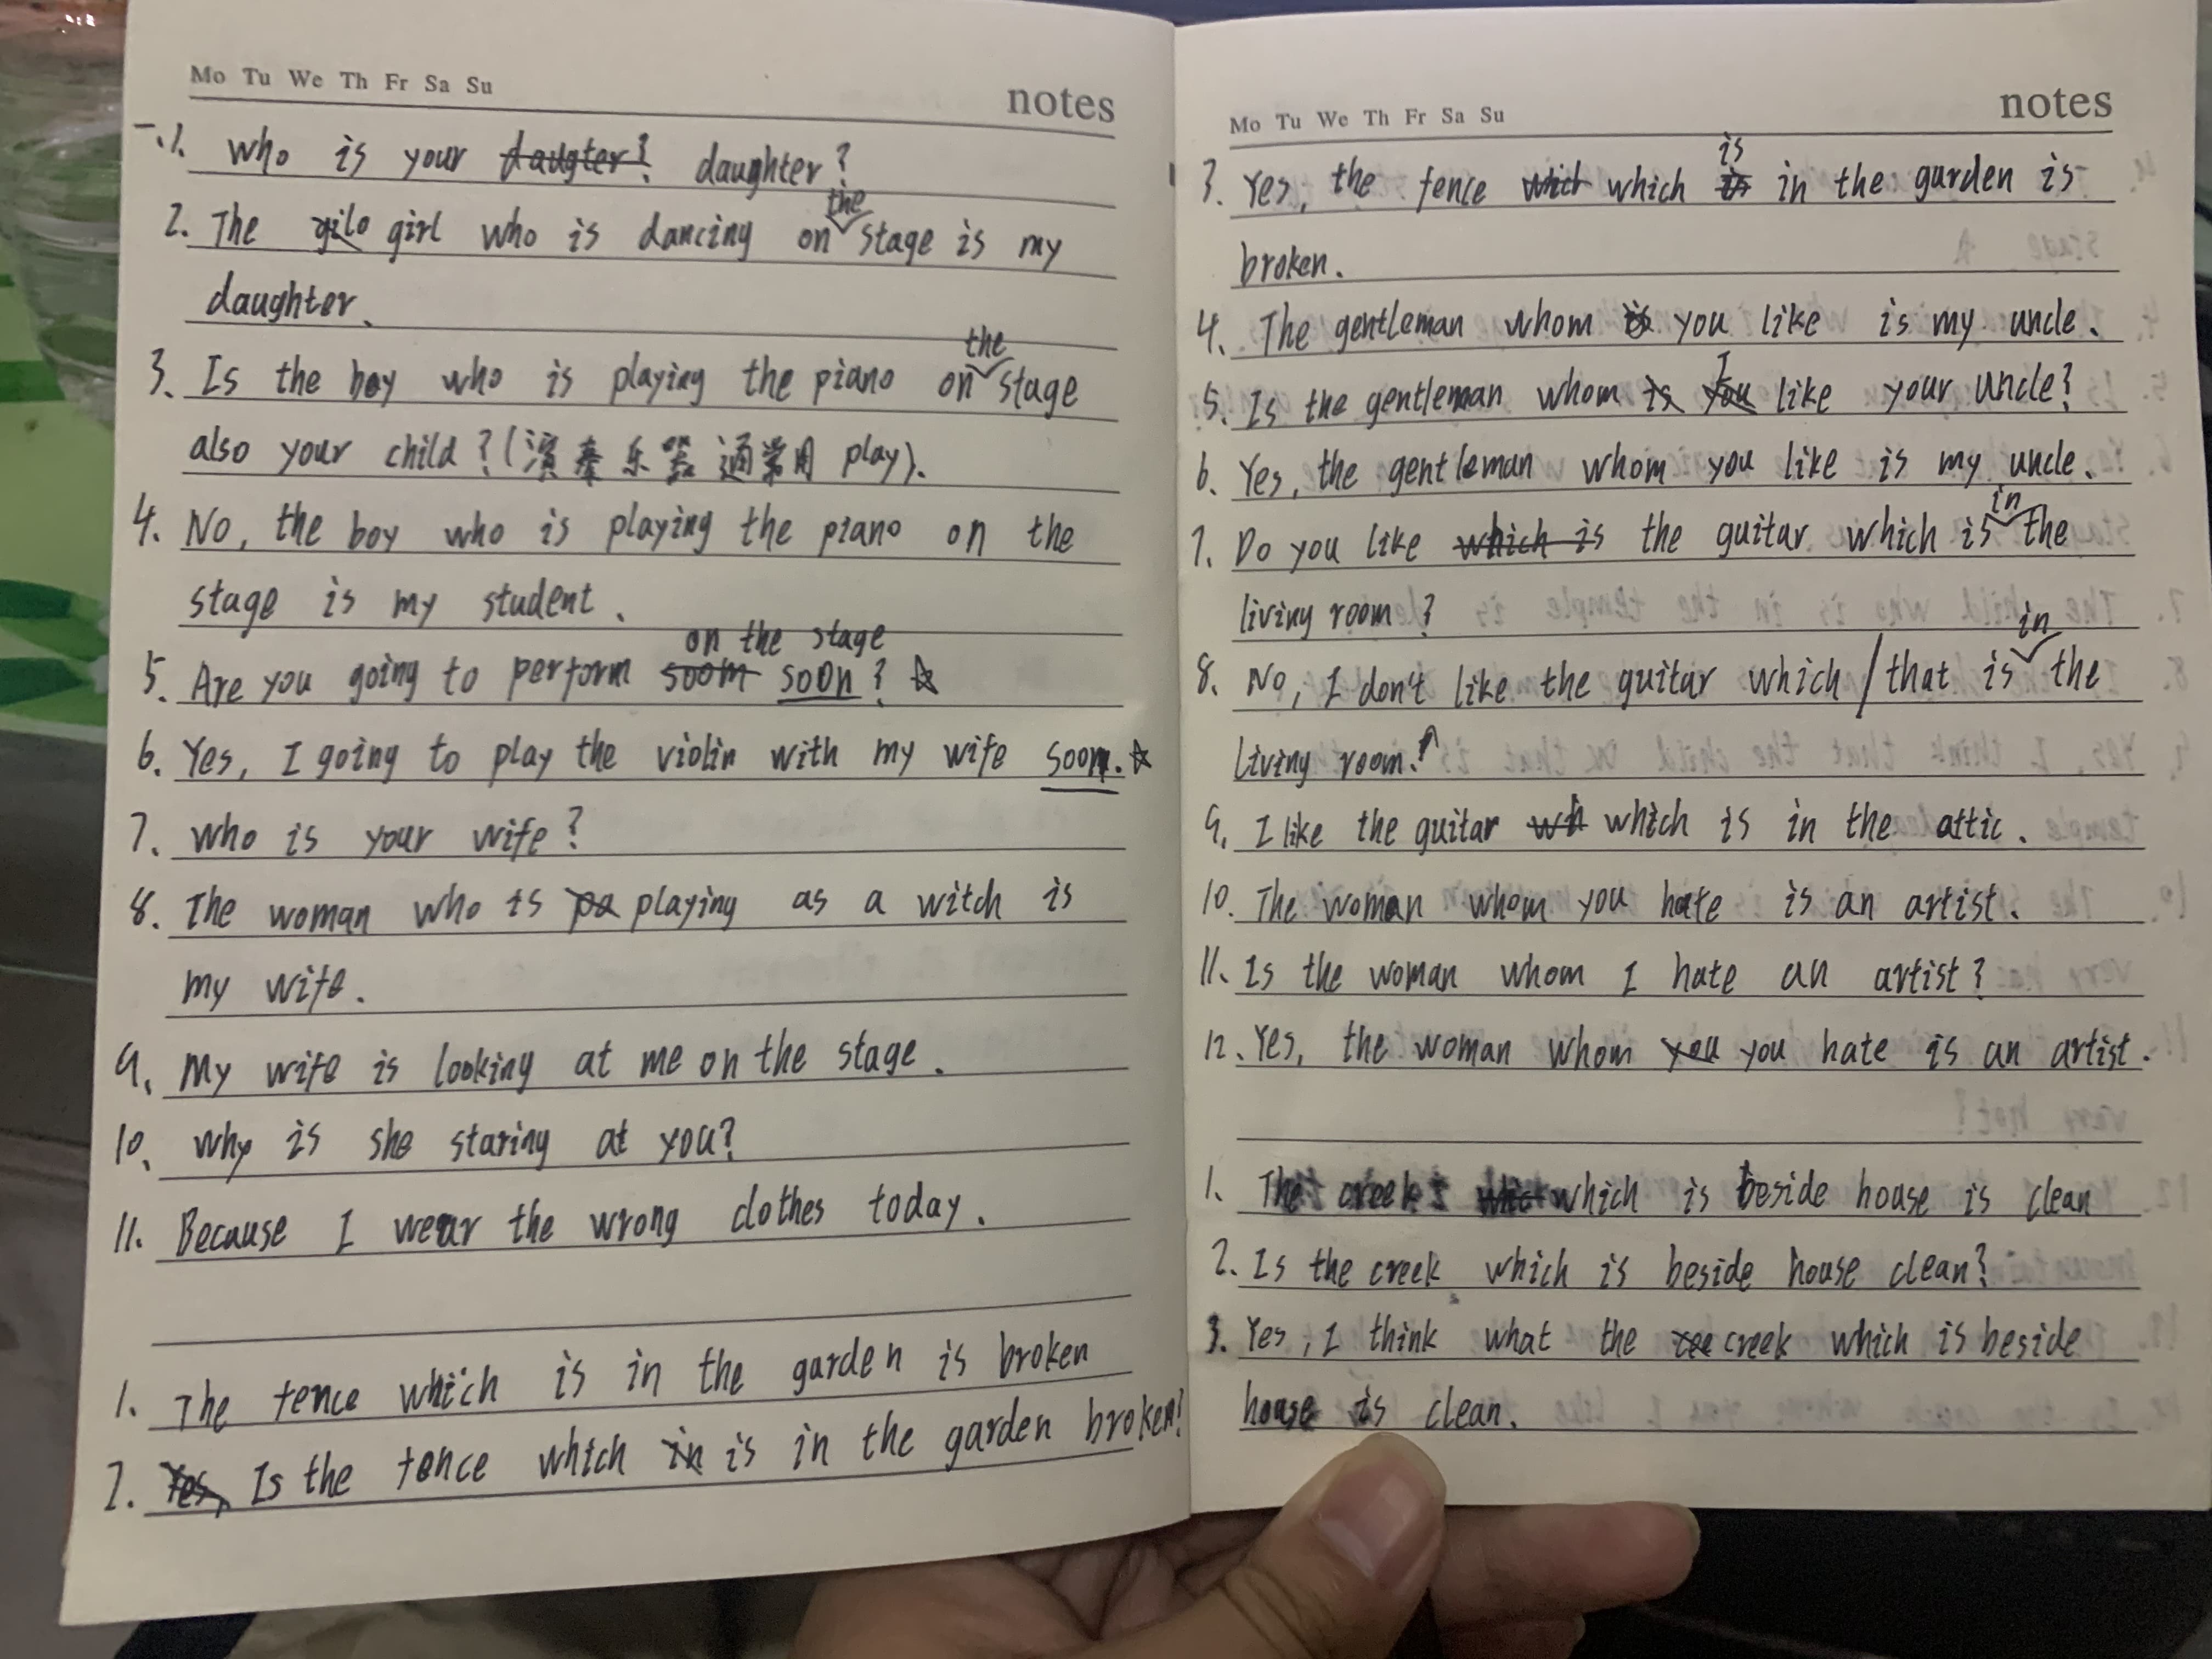 Mo Tu We Th Fr Sa Su
notes
一.1. Who is your daugter? daughter?
the
2. The gilo girl who is dancing on stage is my
daughter.
the
3. Is the boy who is playing the piano on stage
also your child? (演奏乐器通常用 play).
4. No, the boy who is playing the piano on the
stage is my student.
on the stage
5. Are you going to perform soom soon? ☆
6. Yes, I going to play the violin with my wife soon. ☆
7. Who is your wife?
8. The woman who is pa playing as a witch is
my wife.
9. My wife is looking at me on the stage.
10. Why is she staring at you?
11. Because I wear the wrong clothes today.
1. The fence which is in the garden is broken
2. Yes, Is the fence which in is in the garden broken?
Mo Tu We Th Fr Sa Su
notes
is
3. Yes, the fence which which is in the garden is
broken.
4. The gentleman whom is you like is my uncle.
I
5. Is the gentleman whom is you like your uncle?
6. Yes, the gentleman whom you like is my uncle.
in
7. Do you like which is the guitar which is the
living room?
in
8. No, I don't like the guitar which / that is the
living room.
9. I like the guitar wh which is in the attic.
10. The woman whom you hate is an artist.
11. Is the woman whom I hate an artist?
12. Yes, the woman whom you you hate is an artist.
1. The creek whic which is beside house is clean
2. Is the creek which is beside house clean?
3. Yes, I think what the cee creek which is beside
house is clean.